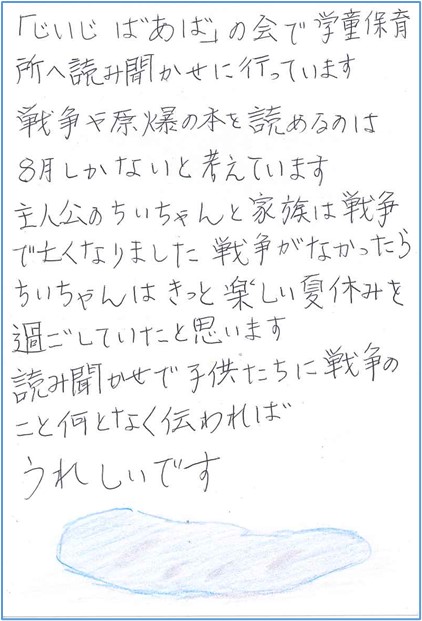 「じいじ ばあば」の会で学童保育
所へ読み聞かせに行っています
戦争や原爆の本を読めるのは
8月しかないと考えています
主人公のちいちゃんと家族は戦争
で亡くなりました 戦争がなかったら
ちいちゃんはきっと楽しい夏休みを
過ごしていたと思います
読み聞かせで子供たちに戦争の
こと何となく伝われば
うれしいです